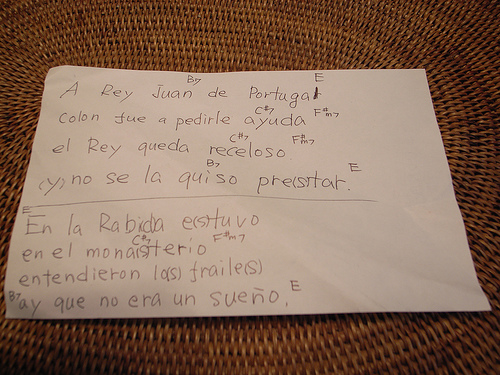 B7 E
A Rey Juan de Portugal
C#7 F#m7
Colon fue a pedirle ayuda
C#7 F#m7
el Rey queda receloso
B7 E
(y) no se la quiso pre(s)tar.
E
En la Rabida e(s)tuvo
C#7 F#m7
en el mona(s)terio
entendieron lo(s) fraile(s)
B7 E
ay que no era un sueño.